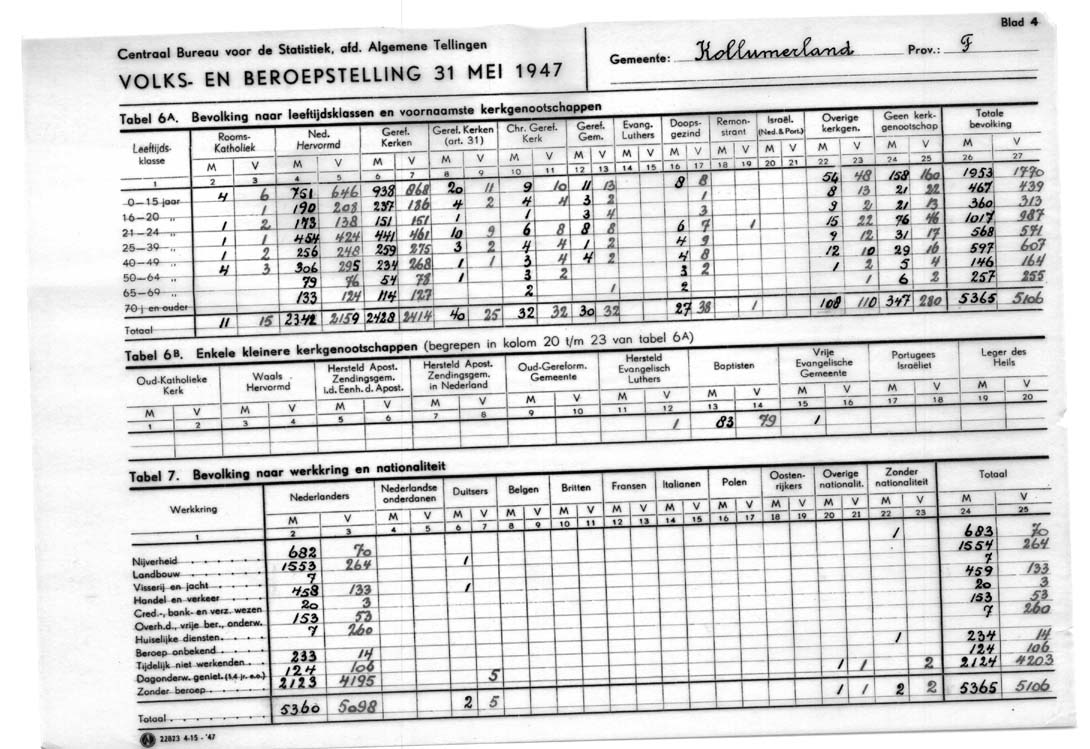 Blad 4
Centraal Bureau voor de Statistiek, afd. Algemene Tellingen
VOLKS- EN BEROEPSTELLING 31 MEI 1947
Gemeente: Kollumerland Prov.: F
Tabel 6A. Bevolking naar leeftijdsklassen en voornaamste kerkgenootschappen
Leeftijds-klasse | Rooms-Katholiek | Ned. Hervormd | Geref. Kerken | Geref. Kerken (art. 31) | Chr. Geref. Kerk | Geref. Gem. | Evang. Luthers | Doopsgezind | Remonstrant | Israël. (Ned. & Port.) | Overige kerkgen. | Geen kerkgenootschap | Totale bevolking
M V M V M V M V M V M V M V M V M V M V M V M V M V
1 2 3 4 5 6 7 8 9 10 11 12 13 14 15 16 17 18 19 20 21 22 23 24 25 26 27
0—15 jaar 4 6 751 646 938 868 20 11 9 10 11 13 8 8 54 48 158 160 1953 1770
16—20 „ 1 190 208 237 186 4 2 4 4 3 2 1 8 13 21 22 467 439
21—24 „ 1 2 173 138 151 151 1 1 3 4 3 9 2 21 13 360 313
25—39 „ 1 1 454 424 441 461 10 9 6 8 8 8 6 7 1 15 22 76 46 1017 987
40—49 „ 1 2 256 248 259 275 3 2 4 4 1 2 4 9 9 12 31 17 568 571
50—64 „ 4 3 306 295 234 268 1 1 3 4 4 2 4 8 12 10 29 16 597 607
65—69 „ 79 76 54 78 1 3 2 3 2 1 2 5 4 146 164
70 j en ouder 133 124 114 127 2 1 2 1 6 2 257 255
Totaal 11 15 2342 2159 2428 2414 40 25 32 32 30 32 27 38 1 108 110 347 280 5365 5106
Tabel 6B. Enkele kleinere kerkgenootschappen (begrepen in kolom 20 t/m 23 van tabel 6A)
Oud-Katholieke Kerk | Waals Hervormd | Hersteld Apost. Zendingsgem. i.d. Eenh. d. Apost. | Hersteld Apost. Zendingsgem. in Nederland | Oud-Gereform. Gemeente | Hersteld Evangelisch Luthers | Baptisten | Vrije Evangelische Gemeente | Portugees Israëliet | Leger des Heils
M V M V M V M V M V M V M V M V M V M V
1 2 3 4 5 6 7 8 9 10 11 12 13 14 15 16 17 18 19 20
1 83 79 1
Tabel 7. Bevolking naar werkkring en nationaliteit
Werkkring | Nederlanders | Nederlandse onderdanen | Duitsers | Belgen | Britten | Fransen | Italianen | Polen | Oostenrijkers | Overige nationalit. | Zonder nationaliteit | Totaal
M V M V M V M V M V M V M V M V M V M V M V M V
1 2 3 4 5 6 7 8 9 10 11 12 13 14 15 16 17 18 19 20 21 22 23 24 25
Nijverheid 682 70 1 683 70
Landbouw 1553 264 1 1554 264
Visserij en jacht 7 7
Handel en verkeer 458 133 1 459 133
Cred.-, bank- en verz. wezen 20 3 20 3
Overh.d., vrije ber., onderw. 153 53 153 53
Huiselijke diensten 7 260 7 260
Beroep onbekend
Tijdelijk niet werkenden 233 14 1 234 14
Dagonderw. geniet. (14 jr. e.o.) 124 106 124 106
Zonder beroep 2123 4195 5 1 1 2 2124 4203
Totaal 5360 5098 2 5 1 1 2 2 5365 5106
22823 4-15 - '47